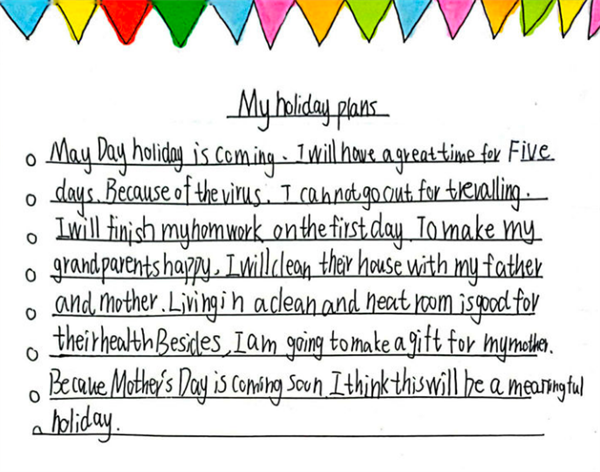 My holiday plans
May Day holiday is coming. I will have a great time for Five
days. Because of the virus. I can not go out for trevalling.
I will finish my homwork on the first day. To make my
grandparents happy, I will clean their house with my father
and mother. Living in a clean and neat room is good for
their health Besides, I am going to make a gift for my mother.
Becaue Mother's Day is coming soon. I think this will be a meaningful
holiday.